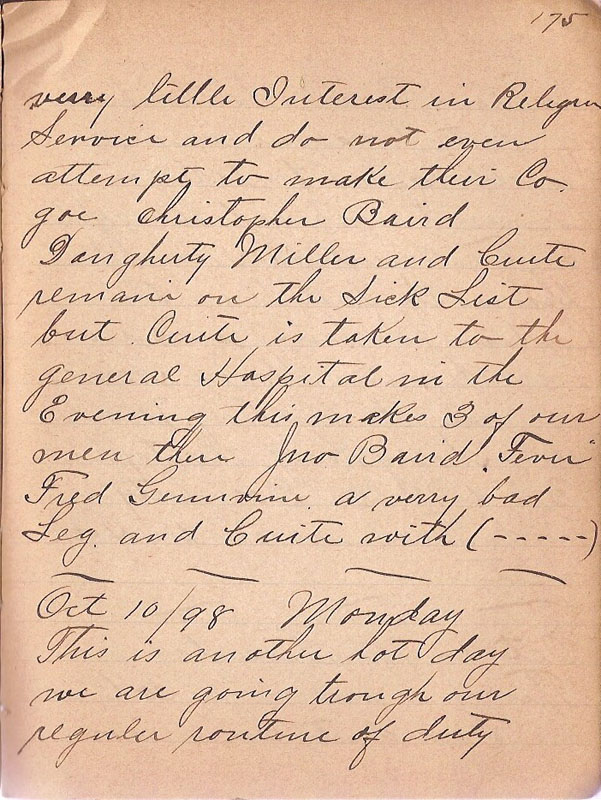 175
verry little Interest in Religon
Service and do not even
attempt to make their Co.
goe Christopher Baird
Daugherty Miller and Cuite
remain on the Sick List
but Cuite is taken to the
general Hospital in the
Evening this makes 3 of our
men there Jno Baird "Fever"
Fred a verry bad
Leg. and Cuite with (-----)
Oct 10/98 Monday
This is another hot day
we are going trough our
reguler routine of duty